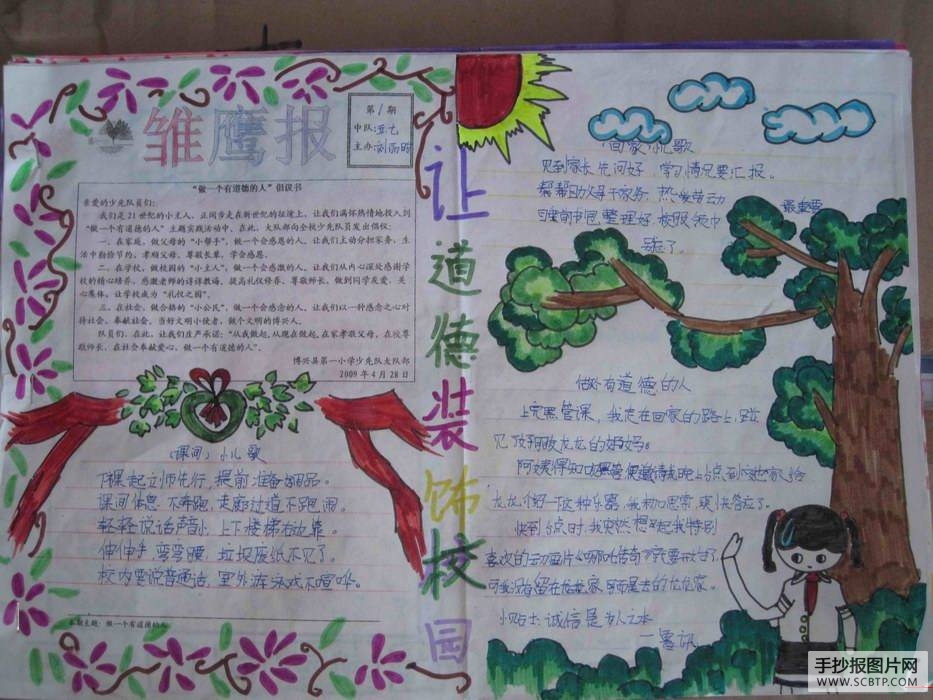 雏鹰报
第1期
中队:五七
主办:刘雨晴
“做一个有道德的人”倡议书
亲爱的少先队员们：
我们是21世纪的小主人，正阔步走在新世纪的征途上，让我们满怀热情地投入到
“做一个有道德的人”主题实践活动中，在此，大队部向全校少先队员发出倡仪：
一、在家庭，做父母的“小帮手”，做一个会感恩的人，让我们主动分担家务，生
活中勤俭节约，孝顺父母，尊敬长辈，学会感恩。
二、在学校，做校园的“小主人”，做一个会感激的人，让我们从内心深处感谢学
校的精心培养，感激老师的谆谆教诲，提高礼仪修养，尊敬师长，做到同学友爱，关
心集体，让学校成为“礼仪之园”。
三、在社会，做合格的“小公民”，做一个会感念的人，让我们以一种感念之心对
待社会，奉献社会，当好文明小使者，做个文明的博兴人。
队员们，在此，让我们庄严承诺：“从我做起,从现在做起,在家孝敬父母，在校尊
敬师长，在社会奉献爱心，做一个有道德的人”。
博兴县第一小学少先队大队部
2009年4月28日
(课间)小儿歌
下课起立师先行，提前准备好用品。
课间休息不奔跑，走廊过道不跑闹。
轻轻说话声音小，上下楼梯右边靠。
伸伸手弯弯腰，垃圾废纸不见了。
校内要说普通话，里外游泳戏不喧哗。
本期主题：做一个有道德的人
让道德装饰校园
回家小儿歌
见到家长先问好，学习情况要汇报。
帮帮助大人干家务，热爱劳动
最重要
书包整理好，校服领巾
做有道德的人
上完黑管课，我走在回家的路上，
见龙龙的妈妈。
龙龙我初心思常，爽快答应了。
快到6点时，我突然想起我特别
喜欢的动画片《哪吒传奇》就要开始了，
小贴士:诚信是为人之本
手抄报图片网
WWW.SCBTP.COM